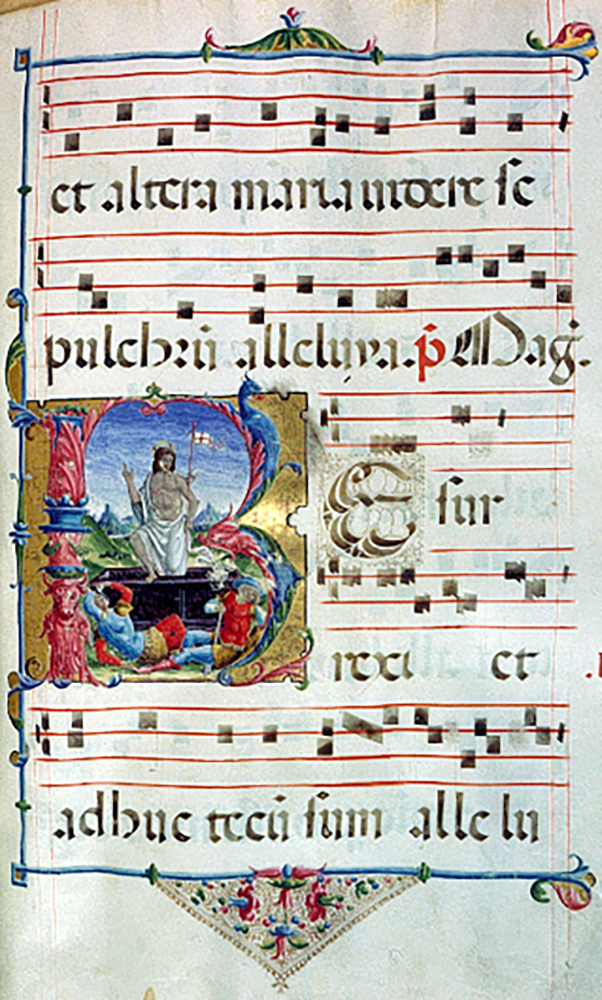 et altera maria videre se
pulchrū alleluya. p̄ Mag.
R E sur
rexi et
adhuc tecū sum alle lu